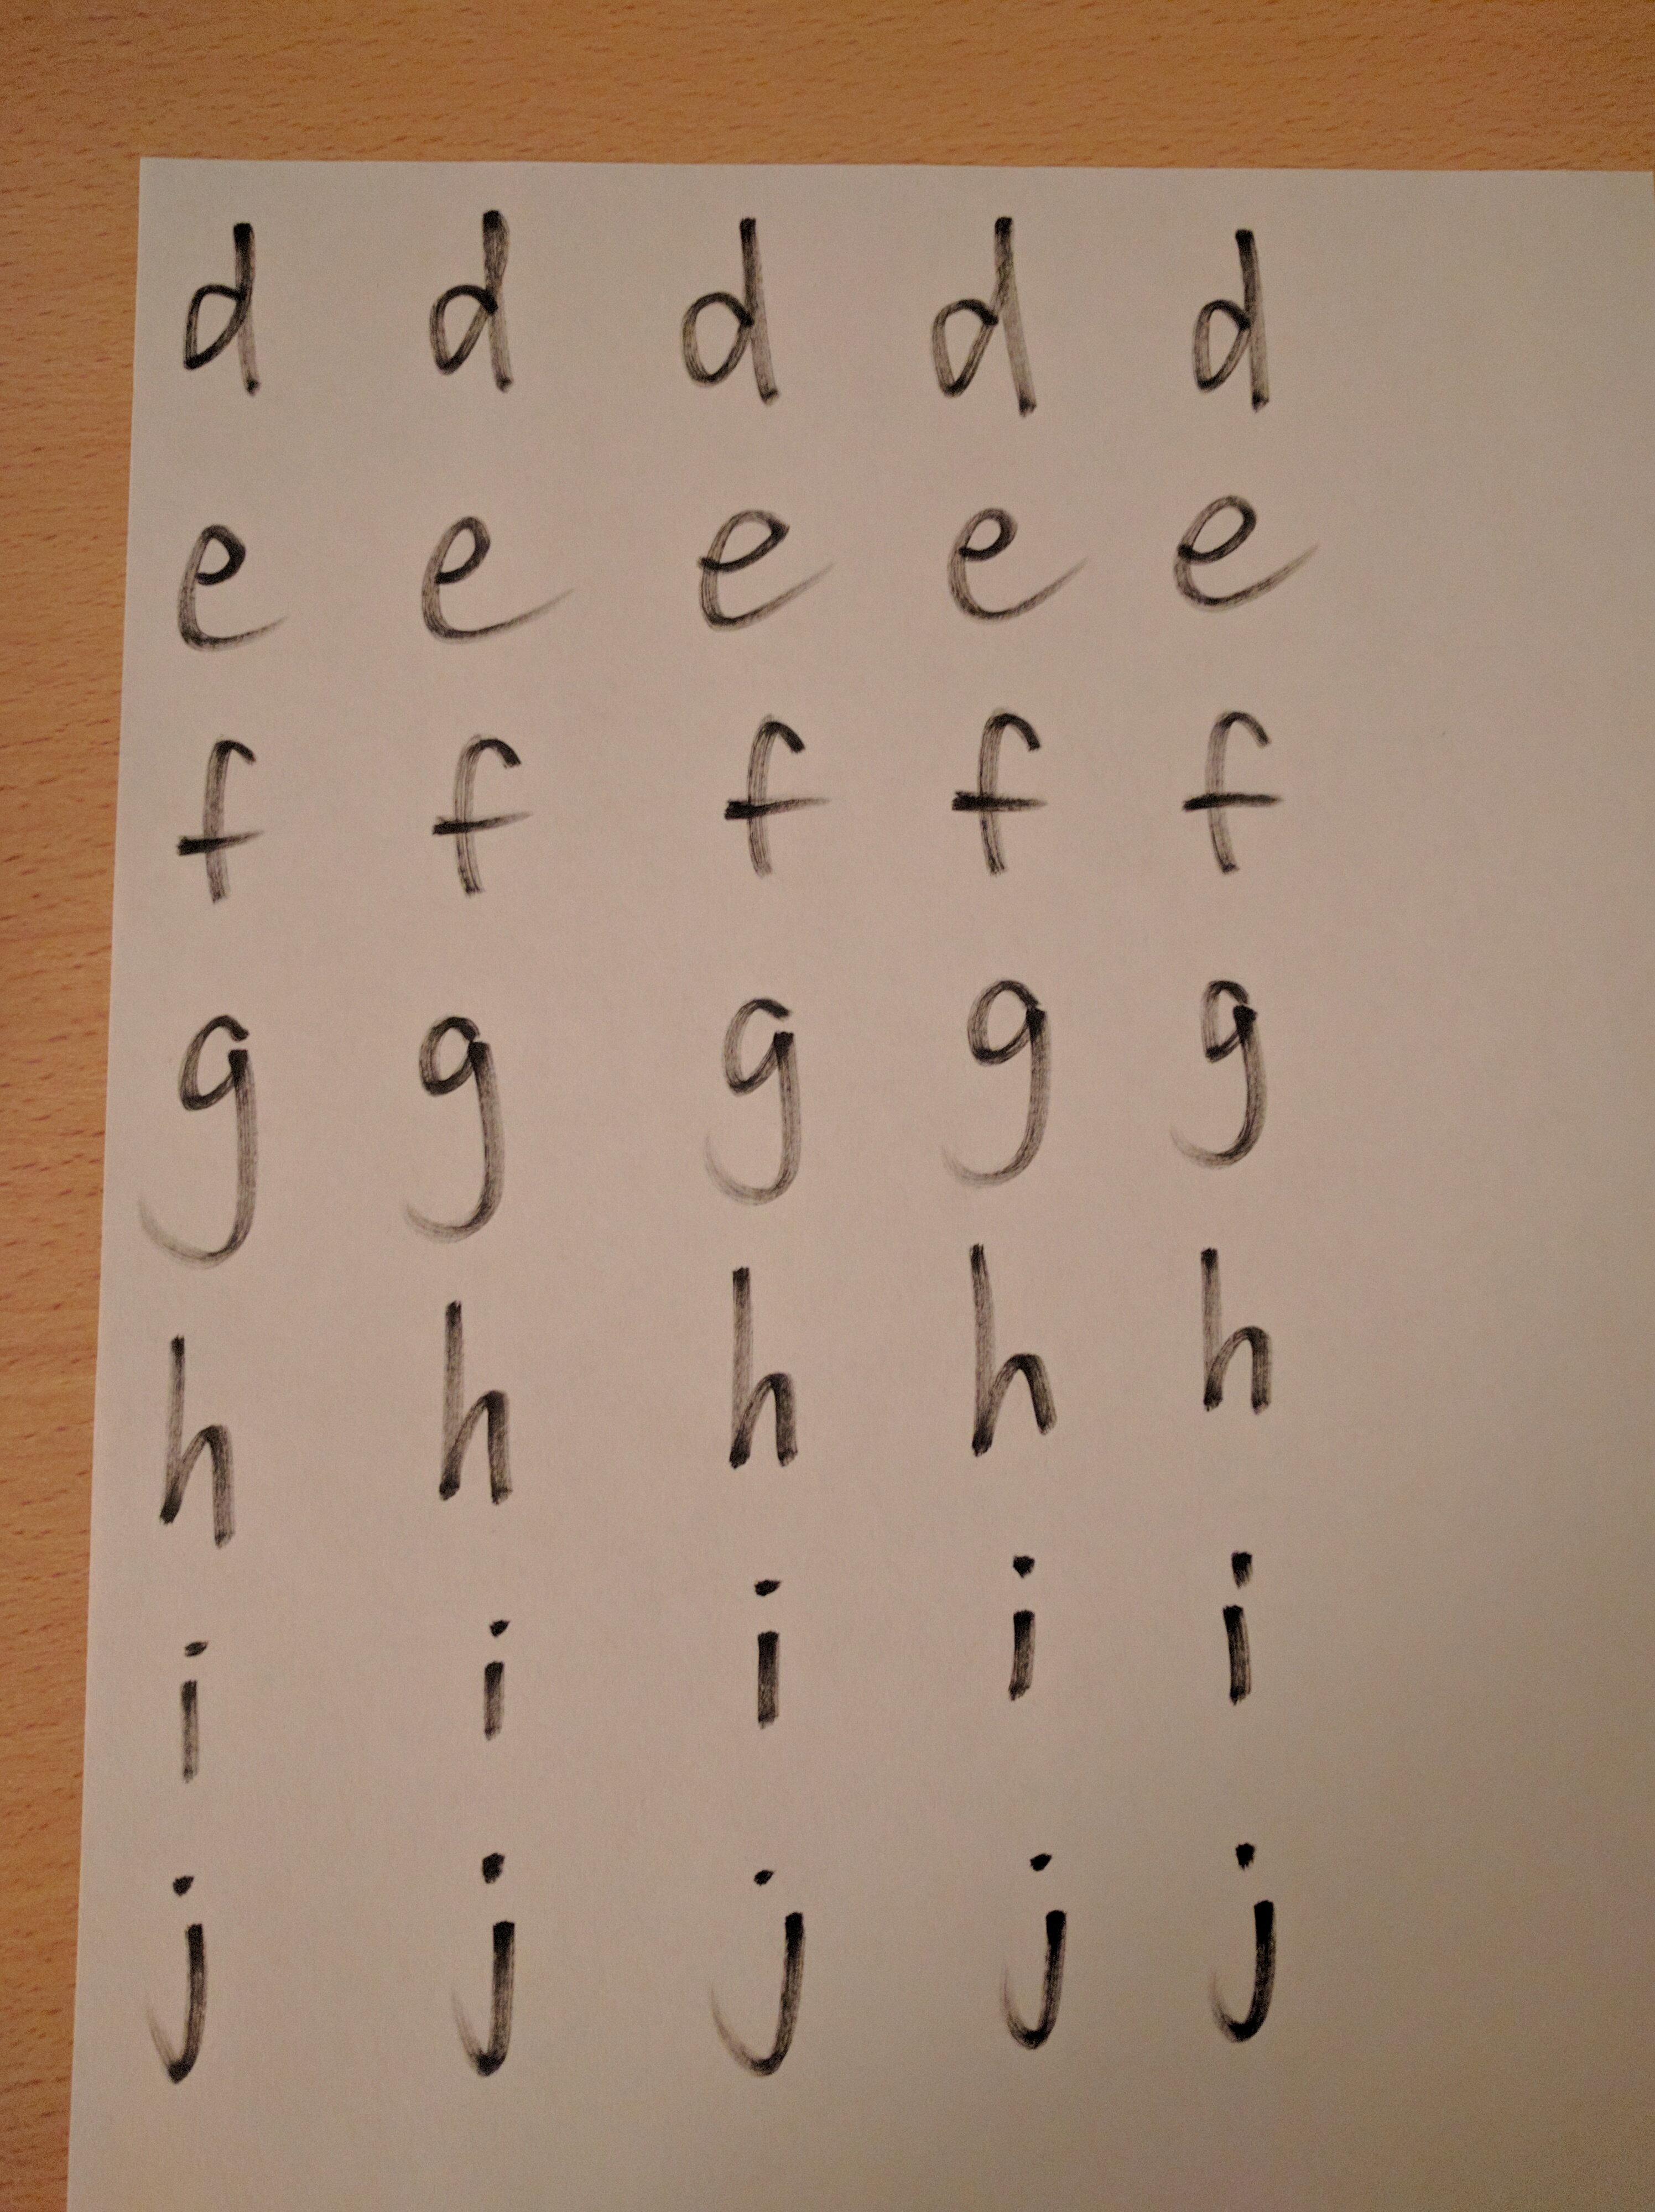 d d d d d
e e e e e
f f f f f
g g g g g
h h h h h
i i i i i
j j j j j